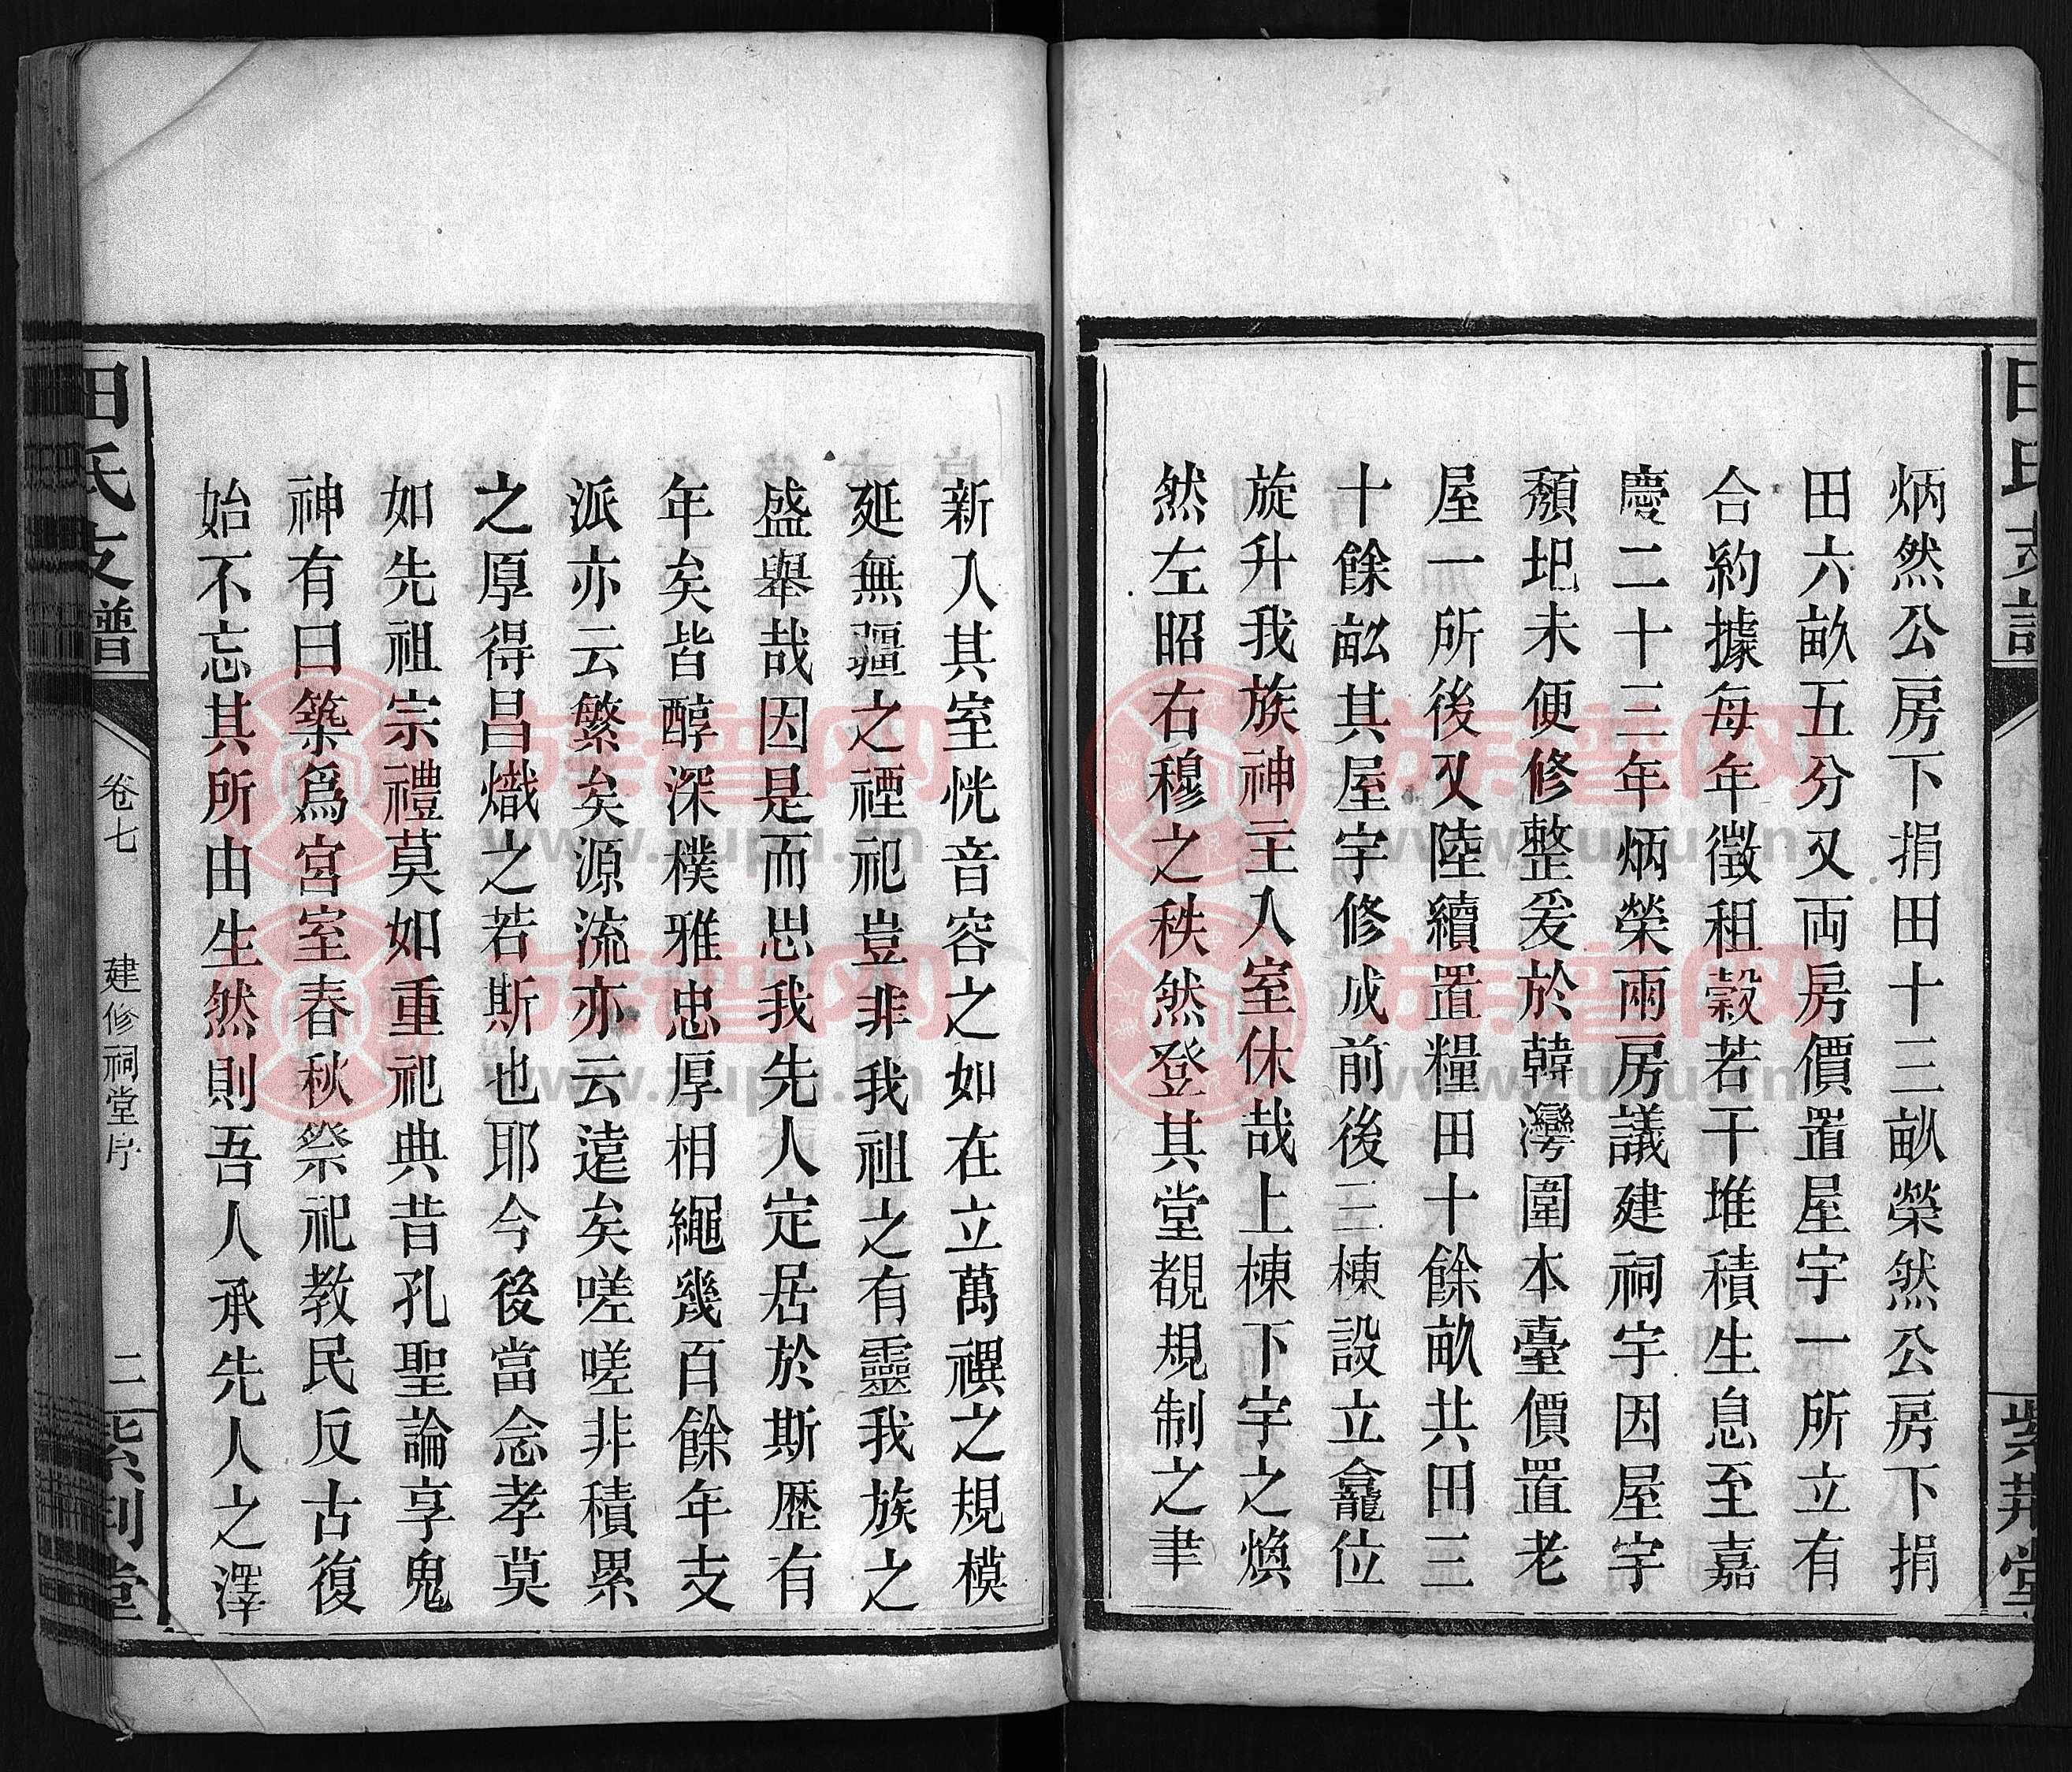 田氏支譜
紫荊堂
炳然公房下捐田十三畝榮然公房下捐
田六畝五分又両房價置屋宇一所立有
合約據每年徵租穀若干堆積生息至嘉
慶二十三年炳榮兩房議建祠宇因屋宇
頹圯未便修整爰於韓灣圍本臺價置老
屋一所後又陸續置糧田十餘畝共田三
十餘畝其屋宇修成前後三棟設立龕位
旋升我族神主入室休哉上棟下宇之煥
然左昭右穆之秩然登其堂覩規制之聿
新入其室恍音容之如在立萬禩之規模
延無疆之禋祀豈非我祖之有靈我族之
盛舉哉因是而思我先人定居於斯歷有
年矣皆醇深樸雅忠厚相繩幾百餘年支
派亦云繁矣源流亦云遠矣嗟嗟非積累
之厚得昌熾之若斯也耶今後當念孝莫
如先祖宗禮莫如重祀典昔孔聖論享鬼
神有曰築爲宮室春秋祭祀教民反古復
始不忘其所由生然則吾人承先人之澤
田氏支譜
卷七
建修祠堂序
二
紫荊堂
族譜网
www.zupu.cn
族譜网
www.zupu.cn
族譜网
www.zupu.cn
族譜网
www.zupu.cn